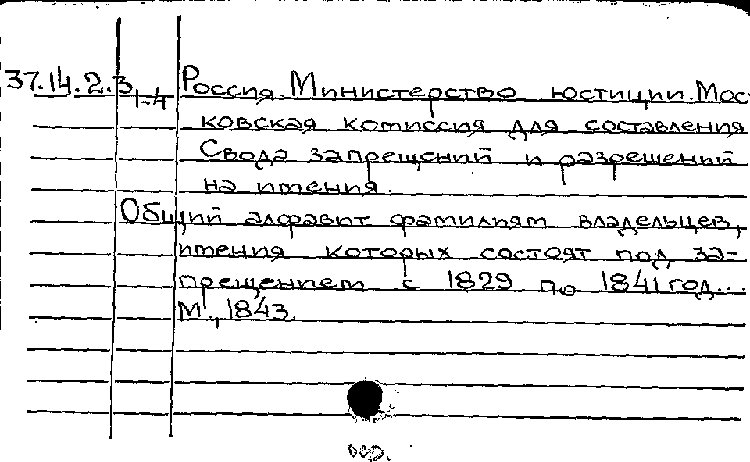 37.14.2.3 1-4 Россия. Министерство юстиции. Мос-
ковская комиссия для составления
Свода запрещений и разрешений
на имения.
Общий алфавит фамилиям владельцев,
имения которых состоят под за-
прещением с 1829 по 1841 год...
М., 1843.